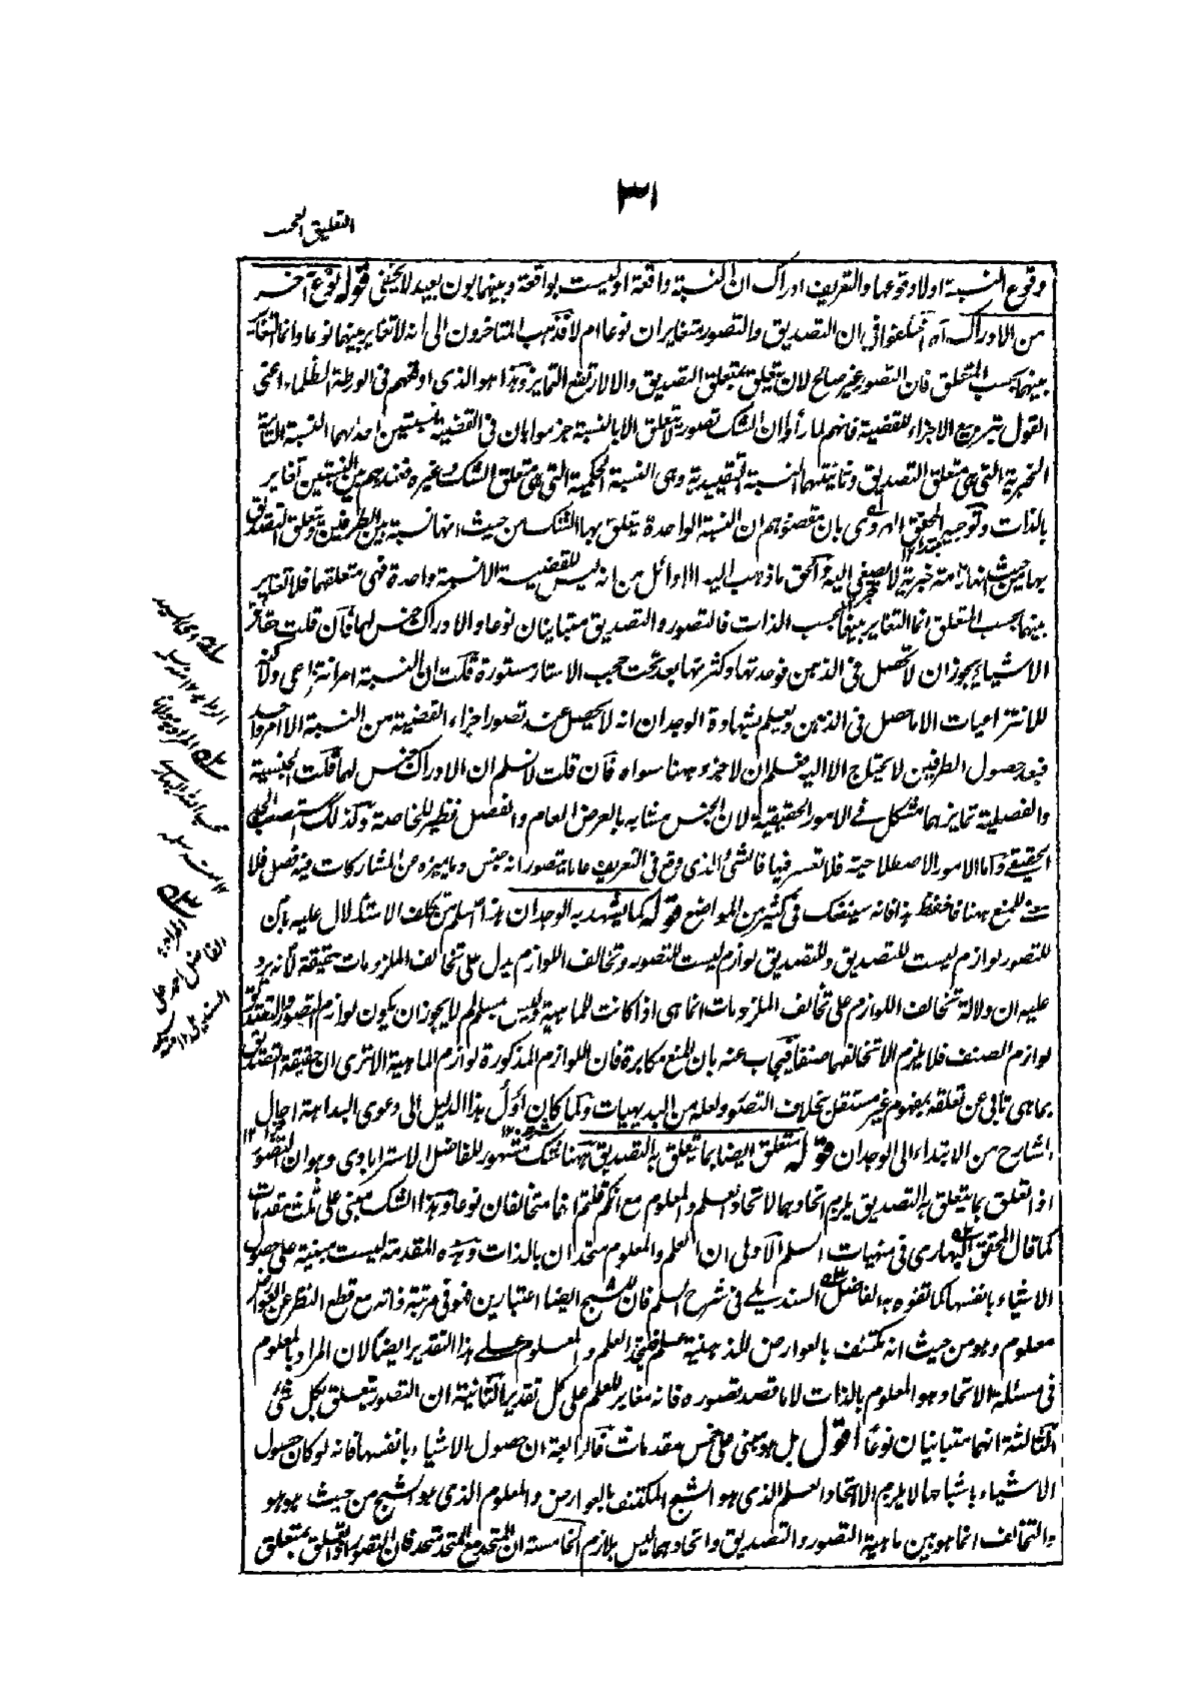 ٣١
التعليق العجيب
وقوع النسبة اولا وقوعها والتعريف ادراك ان النسبة واقعة او ليست بواقعة وبينهما بون بعيد لا يخفى قوله نوع آخر
من الادراك آه اختلفوا في ان التصديق والتصور متغايران نوعا ام لا فذهب المتاخرون الى انه لا تغاير بينهما نوعا وانما التغاير
بينهما بحسب المتعلق فان التصور غير صالح لان يتعلق بمتعلق التصديق والا لارتفع التمايز وهذا هو الذي اوقعهم في الورطة الظلماء اعنى
القول بتربيع الاجزاء للقضية فانهم لما رأوا ان الشك تصور لا يتعلق الا بالنسبة جزموا بان في القضية نسبتين احدهما النسبة التامة
الخبرية التي هي متعلق التصديق وثانيتهما النسبة التقييدية وهي النسبة الحكمية التي هي متعلق الشك وغيره فعندهم بين النسبتين تغاير
بالذات وتوجيه المحقق الهروي بان مقصودهم ان النسبة الواحدة يتعلق بها الشك من حيث انها نسبة بين الطرفين ويتعلق التصديق
بها من حيث انها تامة خبرية لا يصغى اليه والحق ما ذهب اليه الاوائل من انه ليس للقضية الا نسبة واحدة فهي متعلقهما فلا تغاير
بينهما بحسب المتعلق انما التغاير بينهما بحسب الذات فالتصور والتصديق متباينان نوعا والادراك جنس لهما فان قلت حقائق
الاشياء يجوز ان لا تحصل في الذهن فوحدتها وكثرتها بعد تحت حجب الاستار مستورة قلت ان النسبة امر انتزاعي ولا كنه
للانتزاعيات الا ما حصل في الذهن ويعلم بشهادة الوجدان انه لا يحصل عند تصور اجزاء القضية من النسبة الا امر واحد
فبعد حصول الطرفين لا يحتاج الا اليه فعلم ان لا جزء ههنا سواه فان قلت لا نسلم ان الادراك جنس لهما قلت الجنسية
والفصلية تمايزهما مشكل في الامور الحقيقية لان الجنس متشابه بالعرض العام والفصل نظير للخاصة وكذلك استصعب الحد
الحقيقي واما الامور الاصطلاحية فلا تعسر فيها فالشئ الذي وقع في التعريف عاما يتصور انه جنس وما يميزه عن المشاركات فيه فصل فلا
معنى للمنع ههنا فاحفظ هذا فانه سينفعك في كثير من المواضع قوله كما يشهد به الوجدان هذا اسلم من تكلف الاستدلال عليه بان
للتصور لوازم ليست للتصديق وللتصديق لوازم ليست للتصور وتخالف اللوازم يدل على تخالف الملزومات حقيقة لانه يرد
عليه ان دلالة تخالف اللوازم على تخالف الملزومات انما هي اذا كانت للماهية وليس بمسلم لم لا يجوز ان يكون لوازم التصور والتصديق
لوازم الصنف فلا يلزم الا تخالفهما صنفا فيجاب عنه بان المنع مكابرة فان اللوازم المذكورة لوازم الماهية الا ترى ان حقيقة التصديق
بما هي تابى عن تعلقه بمفهوم غير مستقل بخلاف التصور ولعله من البديهيات وكما كان اول هذا الدليل الى دعوى البداهة احال
الشارح من الابتداء الى الوجدان قوله متعلق ايضا بما يتعلق به التصديق ههنا شك مشهور للفاضل الاسترابادي وهو ان التصور
اذا تعلق بما يتعلق به التصديق يلزم اتحادهما لاتحاد العلم والمعلوم مع انكم قلتم انهما متخالفان نوعا وهذا الشك مبنى على ثلث مقدمات
كما قال المحقق البهاري في منهيات السلم الاولى ان العلم والمعلوم متحدان بالذات وهذه المقدمة ليست مبنية على حصول
الاشياء بانفسها كما تفوه به الفاضل السنديلي في شرح السلم فان للشبح ايضا اعتبارين فهو في مرتبة ذاته مع قطع النظر عن العوارض
معلوم وهو من حيث انه مكتنف بالعوارض الذهنية علم فيتحد العلم والمعلوم على هذا التقدير ايضا لان المراد بالمعلوم
في مسئلة الاتحاد هو المعلوم بالذات لا ما قصد تصوره فانه مغاير للعلم على كل تقدير الثانية ان التصور يتعلق بكل شئ
الثالثة انهما متباينان نوعا اقول بل هو مبنى على خمس مقدمات فالرابعة ان حصول الاشياء بانفسها فانه لو كان حصول
الاشياء باشباحها لا يلزم الا اتحاد العلم الذي هو الشبح المكتنف بالعوارض والمعلوم الذي هو الشبح من حيث هو هو
والتخالف انما هو بين ماهية التصور والتصديق واتحادهما ليس بلازم الخامسة ان المتحد مع المتحد متحد فان التصور اذا تعلق بمتعلق